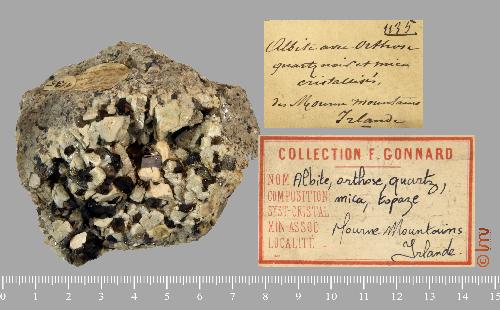 1135.
Albite avec Orthose
quartz noir et mica
cristallisés,
des Mourne mountains
Irlande
COLLECTION F. GONNARD
NOM Albite, orthose, quartz,
COMPOSITION mica, topaze
SYST. CRISTAL
MIN. ASSOC Mourne Mountains
LOCALITÉ Irlande.
0 1 2 3 4 5 6 7 8 9 10 11 12 13 14 15